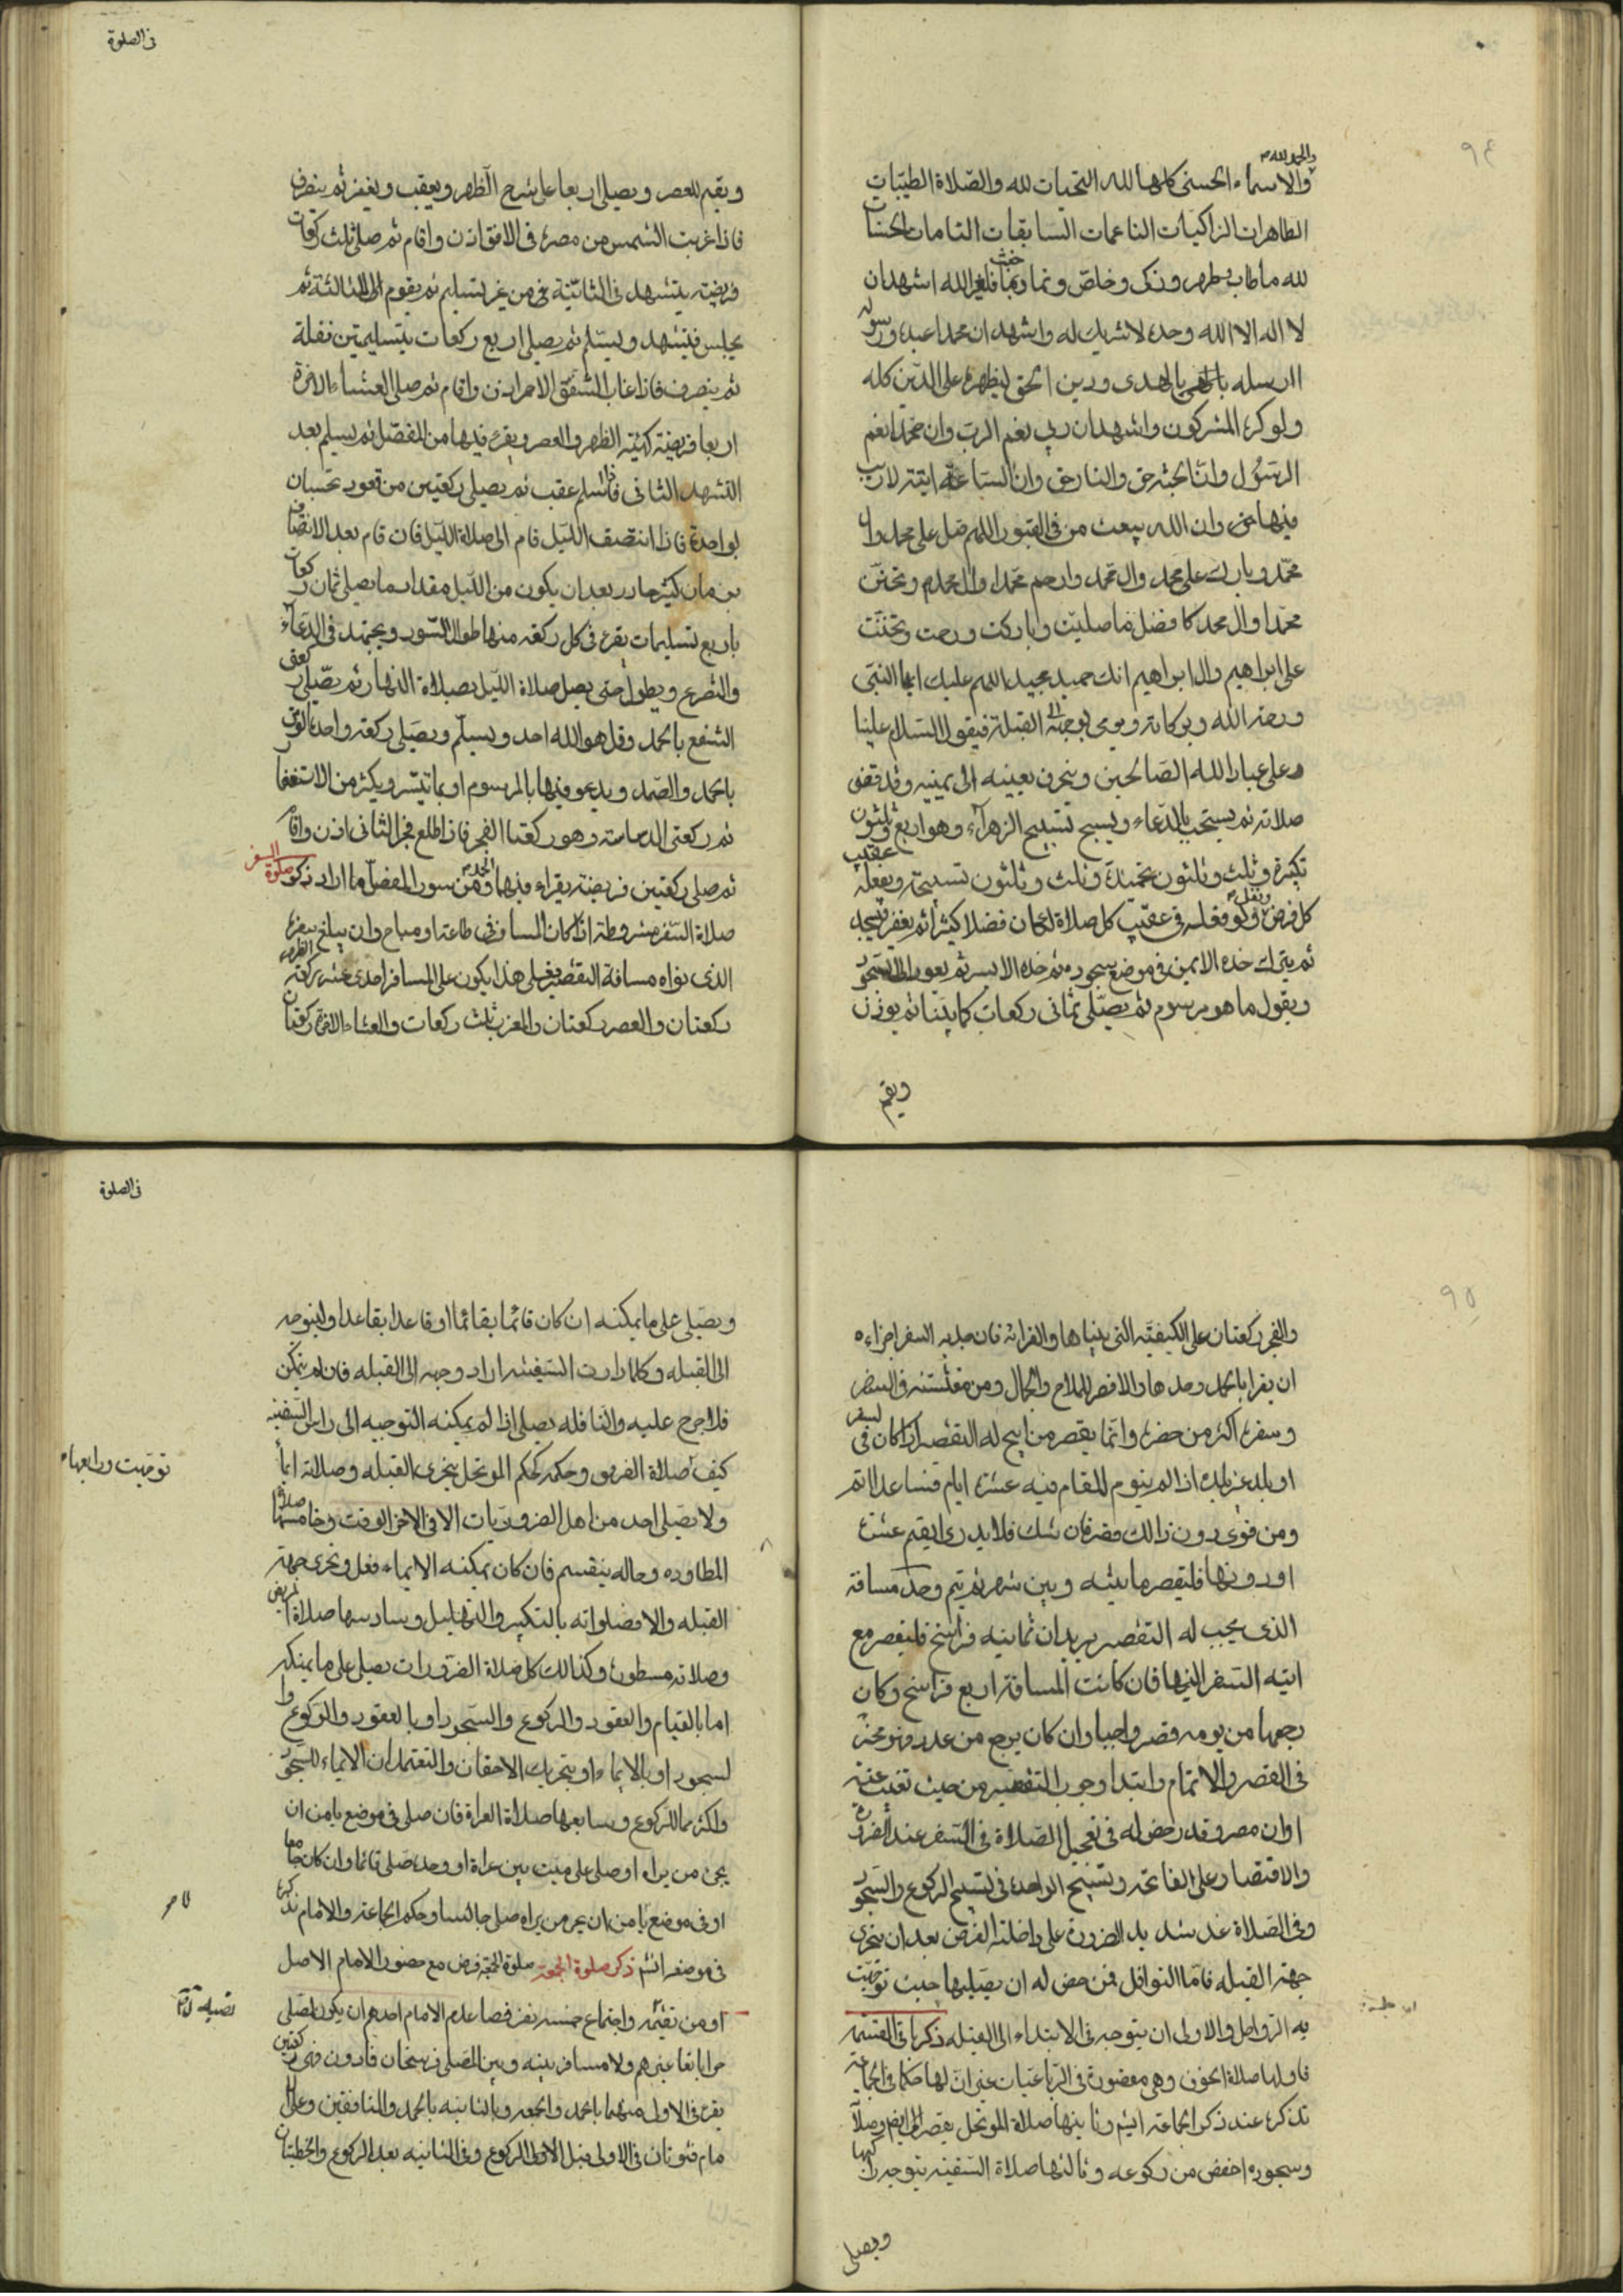 في الصلوة
والحمد لله
والاسماء الحسنى كلها لله التحيات لله والصلاة الطيبات
الطاهرات الزاكيات الناعمات السابقات التامات الحسنات
لله ما طاب وطهر وزكى وخلص ونما وما خبث فلغير الله اشهد ان
لا اله الا الله وحده لا شريك له واشهد ان محمدا عبده ورسوله
ارسله بالهدى ودين الحق ليظهره على الدين كله
ولو كره المشركون واشهد ان ربي نعم الرب وان محمدا نعم
الرسول وان الجنة حق والنار حق وان الساعة آتية لا ريب
فيها وان الله يبعث من في القبور اللهم صل على محمد وال
محمد وبارك على محمد وال محمد وارحم محمدا وال محمد وتحنن
محمدا وال محمد كافضل ما صليت وباركت ورحمت وتحننت
على ابراهيم وال ابراهيم انك حميد مجيد السلام عليك ايها النبي
ورحمة الله وبركاته ويومى بوجهه الى القبلة فيقول السلام علينا
وعلى عباد الله الصالحين وينحرف بعينيه الى يمينه وقد قضى
صلاته ثم يستحب بالدعاء ويسبح تسبيح الزهراء وهو اربع وثلثون
تكبيرة وثلث وثلثون تحميدة وثلث وثلثون تسبيحة ويفعله عقيب
كل فرض ونفل ولو فعله في عقيب كل صلاة لكان فضلا كثيرا ثم يعفر ويسجد
ثم يترك خده الايمن في موضع سجوده ثم خده الايسر ثم يعود الى السجود
ويقول ما هو مرسوم ثم يصلي ثماني ركعات كما بينا ثم يوذن
ويقيم
ويقيم للعصر ويصلي اربعا على شرح الظهر ويعقب ويعفر ثم ينصرف
فاذا غربت الشمس من مصره في الافق اذن واقام ثم صلى ثلث ركعات
فريضة يتشهد في الثانية من غير تسليم ثم يقوم الى الثالثة ثم
يجلس فيتشهد ويسلم ثم يصلي اربع ركعات بتسليمتين نفلة
ثم ينصرف فاذا غاب الشفق الاحمر اذن واقام ثم صلى العشاء الاخرة
اربعا فريضة كهيئة الظهر والعصر ويقرء فيها من المفصل ثم يسلم بعد
التشهد الثاني فاذا سلم عقب ثم يصلي ركعتين من قعود تحسبان
بواحدة فاذا انتصف الليل قام الى صلاة الليل فان قام بعد الانتصاف
بزمان كثير جاز بعد ان يكون من الليل مقدار ما يصلي ثمان ركعات
باربع تسليمات يقرء في كل ركعة منها طوال السور ويجتهد في الدعاء
والتضرع ويطول حتى يصل صلاة الليل بصلاة النهار ثم يصلي ركعتي
الشفع بالحمد وقل هو الله احد ويسلم ويصلي ركعة واحدة الوتر
بالحمد والصمد ويدعو فيها بالمرسوم او بما تيسر ويكثر من الاستغفار
ثم ركعتي الدساسة وهو ركعتا الفجر فاذا طلع فجر الثاني اذن واقام
ثم صلى ركعتين فريضة يقراء فيهما الحمد ومن سور المفصل ما اراد ذكر صلوة السفر
صلاة السفر مشروطة اذا كان المسافر في طاعة او مباح وان يبلغ سفره
الذي نواه مسافة التقصير فعلى هذا يكون على المسافر احدى عشره ركعة الظهر
ركعتان والعصر ركعتان والمغرب ثلث ركعات والعشاء الاخرة ركعتان
في الصلوة
والفجر ركعتان على الكيفية التي بيناها والقراءة فان جد به السفر اجزاءه
ان يقرا بالحمد وحدها ولا قصر للملاح والجمال ومن معيشته في السفر
وسفره اكثر من حضره وانما يقصر من ابيح له التقصير اذا كان في سفر
او بلد غير بلده اذا لم ينو المقام فيه عشرة ايام فصاعدا اتم
ومن نوى دون ذلك قصر فان شك فلا يدري ايقيم عشرة
او دونها فليقصر ما بينه وبين شهر ثم يتم وحد مسافة
الذي يجب له التقصير بريدان ثمانيه فراسخ فليقصر مع
نيته السفر اليها فان كانت المسافة اربع فراسخ وكان
رجعها من يومه قصر واجبا وان كان يرجع من غده فهو مخير
في القصر والاتمام وابتدا وجوب التقصير من حيث تغيب عنه
اذان مصره وقد رخص له في تعجيل الصلاة في السفر عند الضرورة
والاقتصار على الفاتحه وتسبيح الواحدة في تسبيح الركوع والسجود
وفي الصلاة عند شديد الضرورة على راحلته الفرض بعد ان يتحرى
جهة القبله فاما النوافل فمرخص له ان يصليها حيث توجهت
به الرواحل والاولى ان يتوجه في الابتداء الى القبله ذكر باقي القسمة
فاولها صلاة الخوف وهي مقصورة في الرباعيات غير ان لها حكما في الجماعة
نذكره عند ذكر الجماعة انشم وثانيها صلاة الموتحل يقصر الفرايض وصلاته
وسجوده اخفض من ركوعه وثالثها صلاة السفينه يتوجه راكبها
ويصلي
ويصلي على ما يمكنه ان كان قائما بقائما او قاعدا بقاعدا وليتوجه
الى القبله وكلما دارت السفينه ادار وجهه الى القبله فان لم يتمكن
فلا حرج عليه والنافله يصلي اذا لم يمكنه التوجيه الى راس السفينه
توجهت ورابعها
كيف صلاة الغريق وحكمه كحكم الموتحل يتحرى القبله وصلاته ايماء
ولا يصلي احد من اهل الضروريات الا في الاخر الوقت وخامسها صلاة
المطاوده وحاله ينقسم فان كان يمكنه الايماء فعل ويتحرى جهة
القبله والا فصلواته بالتكبير والتهليل وسادسها صلاة المريض
وصلاته مسطورة وكذلك كل صلاة الضرورات يصلي على ما يمكنه
اما بالقيام والعقود والركوع والسجود او بالعقود والركوع وا
لسجود او بالايماء او بتحريك الاحفان والتعتمد ان الايماء للسجود
واكثر مما للركوع وسابعها صلاة العراة فان صلى في موضع يامن ان
يجئ من يراه او صلى على ميت بين عراة او وحده صلى قائما وان كان جامعا
او في موضع يامن ان يمر من يراه صلى جالسا وحكم الجماعة والامام نذكره
في موضعه انشم ذكر صلوة الجمعة صلوة الجمعة فرض مع حضور الامام الاصل
او من تقيمه واجتماع خمسة نفر فصاعدا الامام احدهم ان يكون المصلي
حرا بالغا غير هم ولا مسافر بينه وبين المصلى فرسخان فما دون فهي ركعتين
يقرء في الاولى منهما بالحمد والجمعه وبالثانيه بالحمد والمنافقين وعلى الا
مام قنوتان في الاولى قبل الاولى الركوع وفي الثانيه بعد الركوع والخطبتان